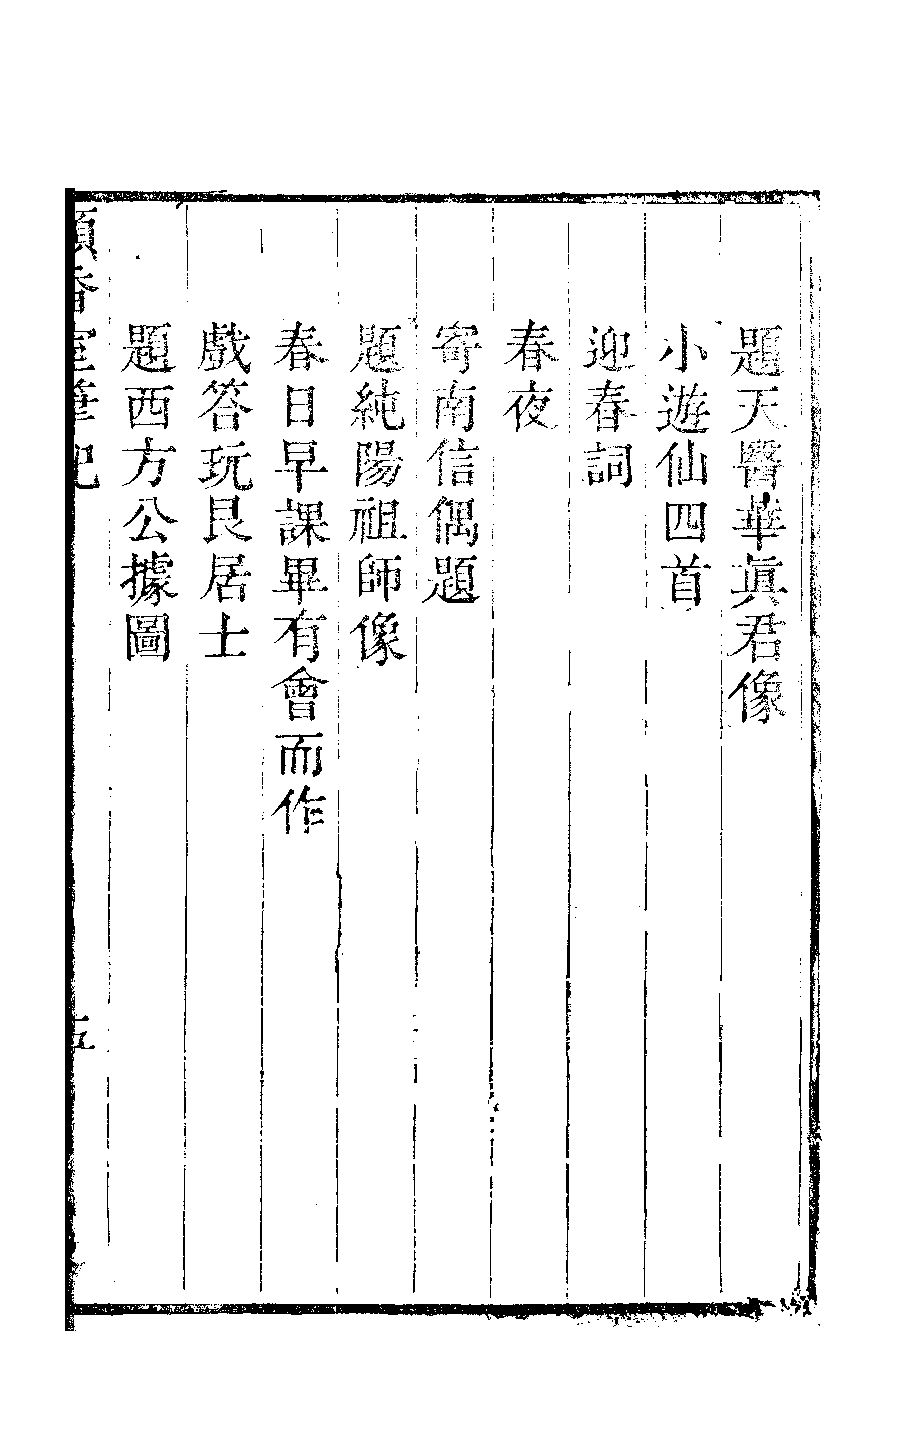 題天醫華眞君像
小遊仙四首
迎春詞
春夜
寄南信偶題
題純陽祖師像
春日早課畢有會而作
戲答玩艮居士
題西方公據圖
香室筆記
五